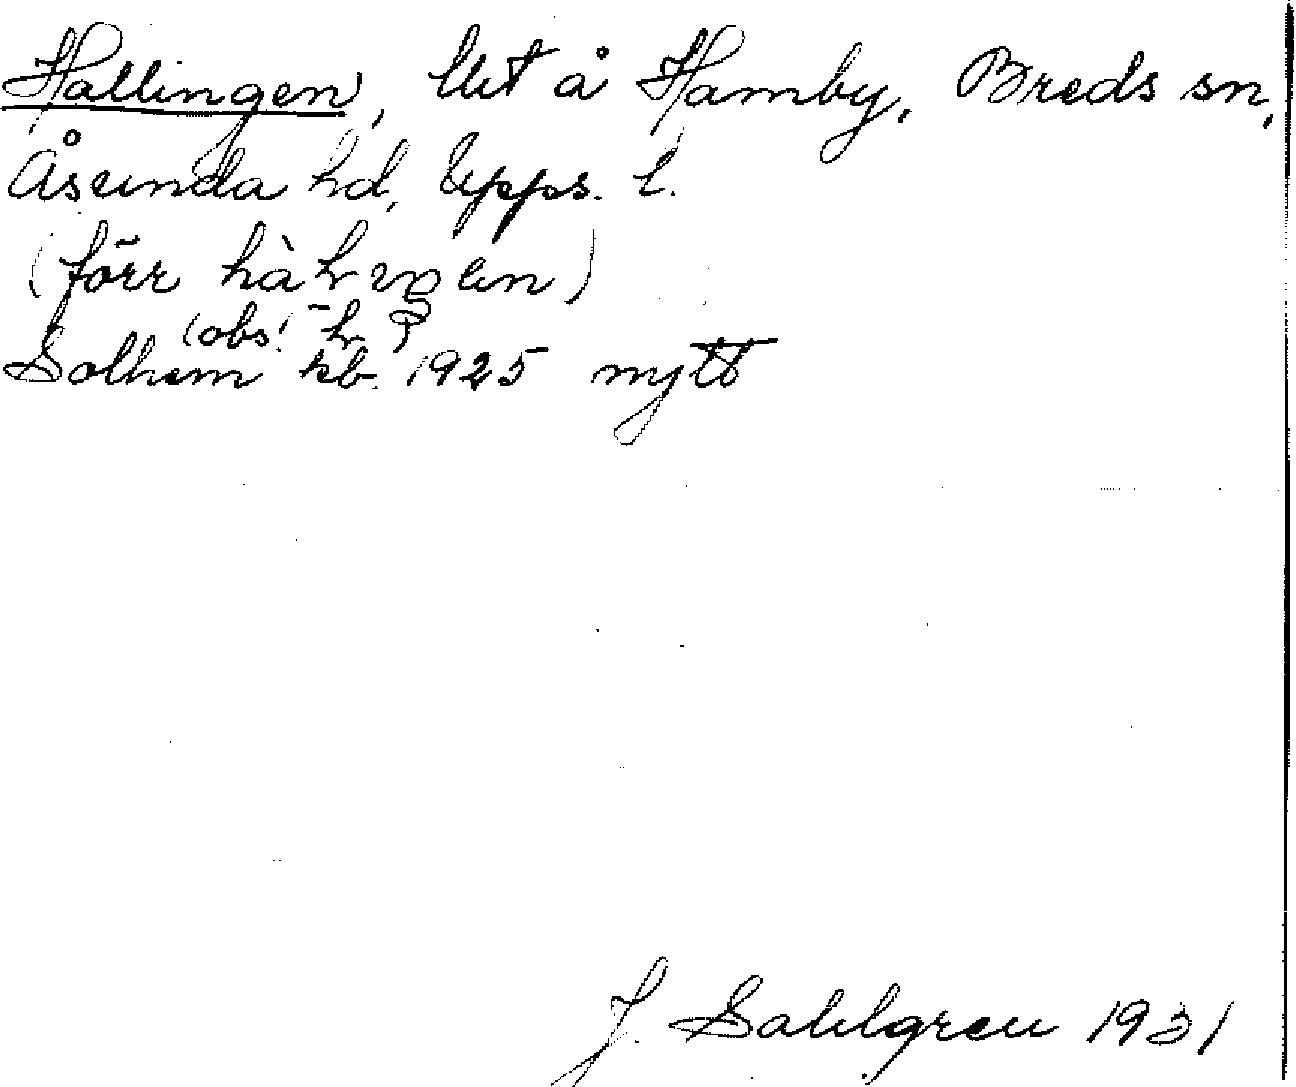 Hallingen, lht å Hamby, Breds sn,
Åsunda hd, Upps. l.
(förr
(obs!
Solhem kb. 1925 nytt
J. Sahlgren 1931